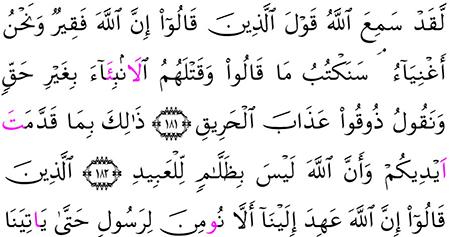 لَّقَدْ سَمِعَ ٱللَّهُ قَوْلَ ٱلَّذِينَ قَالُوٓا۟ إِنَّ ٱللَّهَ فَقِيرٌ وَنَحْنُ
أَغْنِيَآءُ ۘ سَنَكْتُبُ مَا قَالُوا۟ وَقَتْلَهُمُ ٱلَانۢبِئَآءَ بِغَيْرِ حَقٍّ
وَنَقُولُ ذُوقُوا۟ عَذَابَ ٱلْحَرِيقِ ﴿١٨١﴾ ذَٰلِكَ بِمَا قَدَّمَتَ
اَيْدِيكُمْ وَأَنَّ ٱللَّهَ لَيْسَ بِظَلَّامٍ لِّلْعَبِيدِ ﴿١٨٢﴾ ٱلَّذِينَ
قَالُوٓا۟ إِنَّ ٱللَّهَ عَهِدَ إِلَيْنَآ أَلَّا نُومِنَ لِرَسُولٍ حَتَّىٰ يَاتِيَنَا